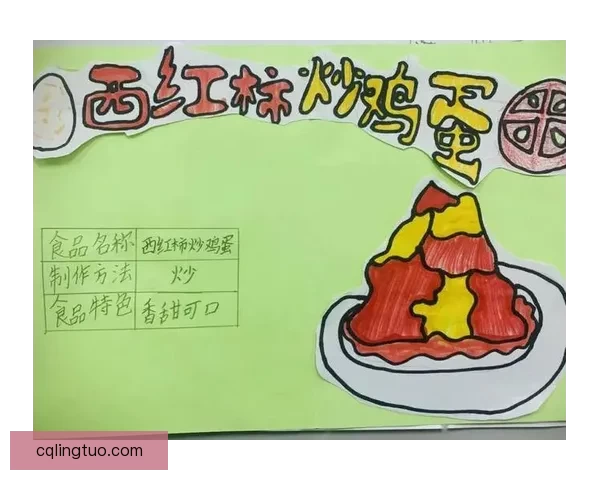 西红柿炒鸡蛋
食品名称 西红柿炒鸡蛋
制作方法 炒
食品特色 香甜可口
cqlingtuo.com